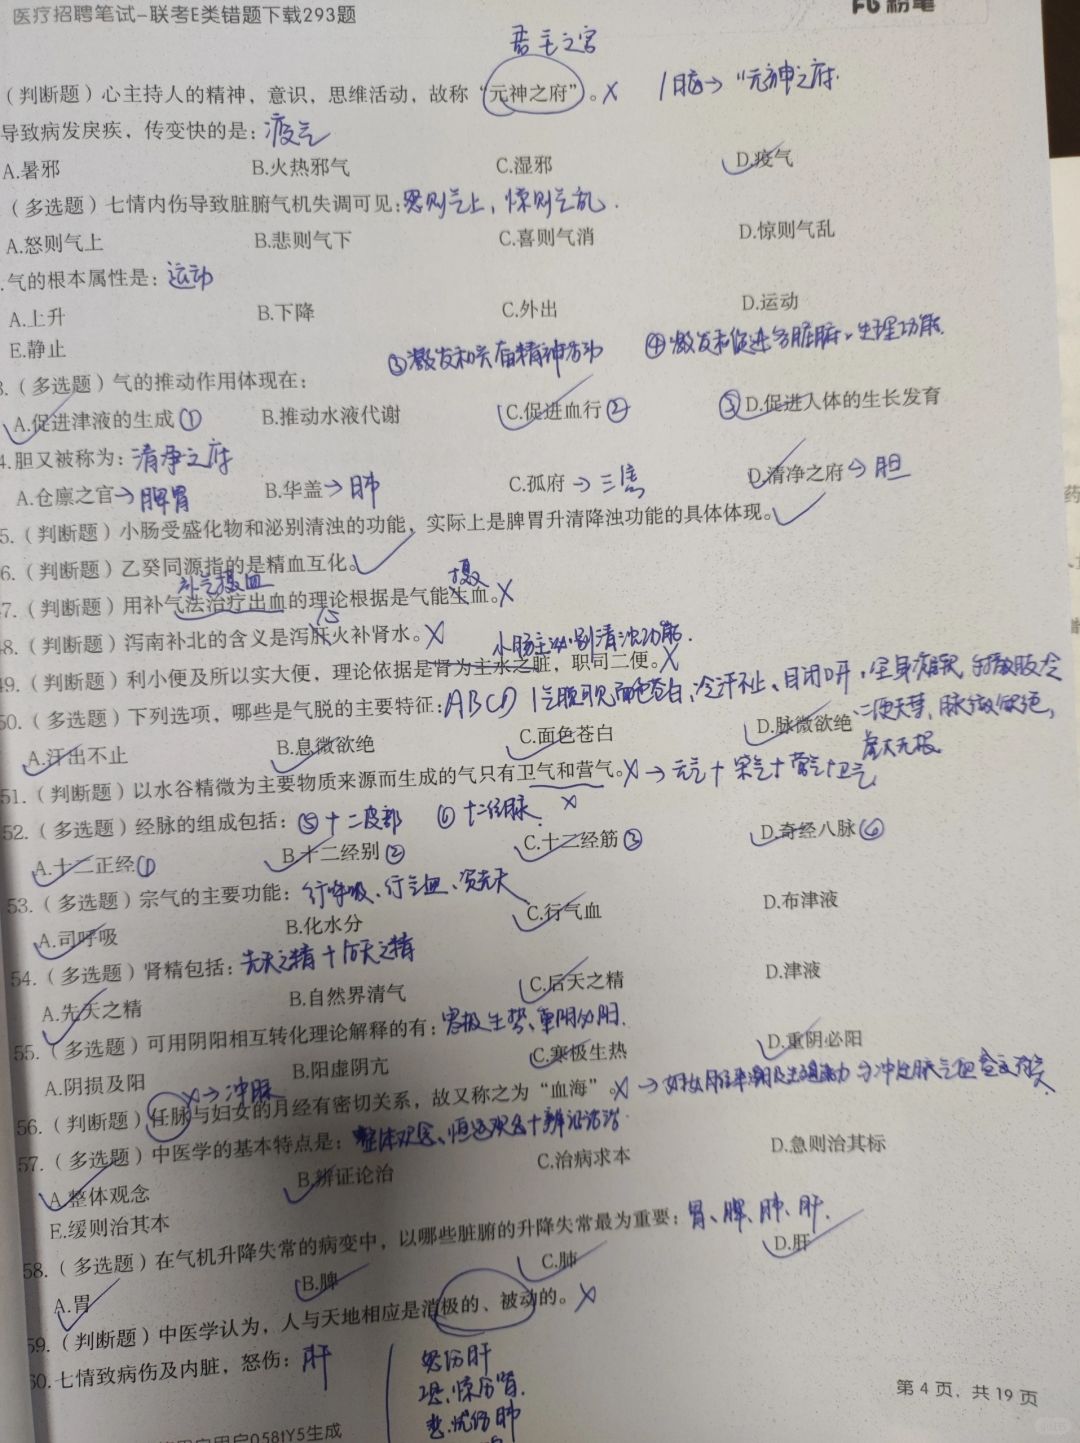 医疗招聘笔试-联考E类错题下载293题
粉笔
君主之官
（判断题）心主持人的精神，意识，思维活动，故称“元神之府”。X 脑→“元神之府.
导致病发戾疾，传变快的是：疫气
A.暑邪 B.火热邪气 C.湿邪 D.疫气
（多选题）七情内伤导致脏腑气机失调可见：怒则气上，惊则气乱.
A.怒则气上 B.悲则气下 C.喜则气消 D.惊则气乱
.气的根本属性是：运动
A.上升 B.下降 C.外出 D.运动
E.静止
③激发和兴奋精神活动 ④激发和促进各脏腑 生理功能.
3.（多选题）气的推动作用体现在：
A.促进津液的生成① B.推动水液代谢 C.促进血行② ③D.促进人体的生长发育
4.胆又被称为：清净之府
A.仓廪之官→脾胃 B.华盖→肺 C.孤府→三焦 D.清净之府→胆
5.（判断题）小肠受盛化物和泌别清浊的功能，实际上是脾胃升清降浊功能的具体体现。
6.（判断题）乙癸同源指的是精血互化。
补气摄血 摄
47.（判断题）用补气法治疗出血的理论根据是气能生血。X
心
48.（判断题）泻南补北的含义是泻肝火补肾水。X
小肠主泌别清浊功能.
49.（判断题）利小便及所以实大便，理论依据是肾为主水之脏，职司二便。X
50.（多选题）下列选项，哪些是气脱的主要特征：ABCD 气脱可见面色苍白、冷汗不止、目闭口开、全身瘫软、手撒肢冷
二便失禁、脉微欲绝，
A.汗出不止 B.息微欲绝 C.面色苍白 D.脉微欲绝
虚大无根
51.（判断题）以水谷精微为主要物质来源而生成的气只有卫气和营气。X→元气+宗气+营气+卫气
52.（多选题）经脉的组成包括：⑤十二皮部 ⑥十二经脉 X
A.十二正经① B.十二经别② C.十二经筋③ D.奇经八脉④
53.（多选题）宗气的主要功能：行呼吸、行气血、资先天
A.司呼吸 B.化水分 C.行气血 D.布津液
54.（多选题）肾精包括：先天之精+后天之精
A.先天之精 B.自然界清气 C.后天之精 D.津液
55.（多选题）可用阴阳相互转化理论解释的有：寒极生热、重阴必阳.
A.阴损及阳 B.阳虚阴亢 C.寒极生热 D.重阴必阳
X→冲脉
56.（判断题）任脉与妇女的月经有密切关系，故又称之为“血海”。X
57.（多选题）中医学的基本特点是：整体观念、恒动观念+辨证论治.
A.整体观念 B.辨证论治 C.治病求本 D.急则治其标
E.缓则治其本
58.（多选题）在气机升降失常的病变中，以哪些脏腑的升降失常最为重要：胃、脾、肺、肝.
A.胃 B.脾 C.肺 D.肝
59.（判断题）中医学认为，人与天地相应是消极的、被动的。X
60.七情致病伤及内脏，怒伤：肝
怒伤肝
恐、惊伤肾.
悲、忧伤肺
第 4 页，共 19 页
0581Y5生成